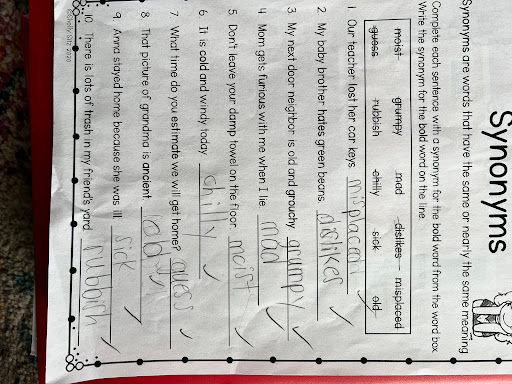 Synonyms
Synonyms are words that have the same or nearly the same meaning
Complete each sentence with a synonym for the bold word from the word box.
Write the synonym for the bold word on the line.
moist grumpy mad dislikes misplaced
guess rubbish chilly sick old
1. Our teacher lost her car keys. misplaced
2. My baby brother hates green beans. dislikes
3. My next door neighbor is old and grouchy. grumpy
4. Mom gets furious with me when I lie. mad
5. Don't leave your damp towel on the floor. moist
6. It is cold and windy today. chilly
7. What time do you estimate we will get home? guess
8. That picture of grandma is ancient. old
9. Anna stayed home because she was ill. sick
10. There is lots of trash in my friend's yard. rubbish
©Shelly Sitz 2020